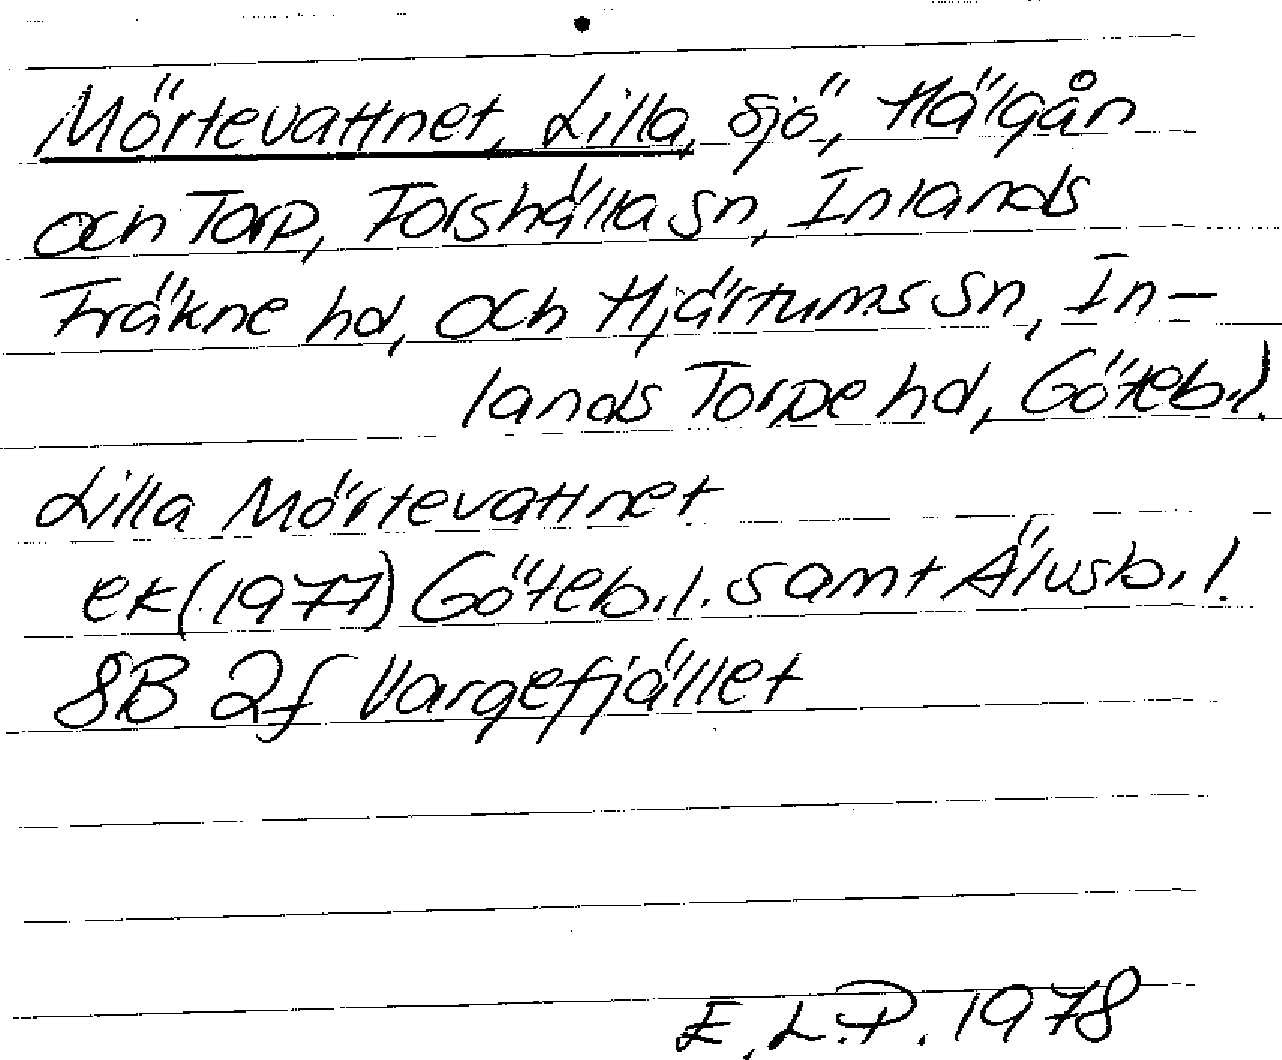 Mörtevattnet, Lilla, sjö, Hälgån
och Torp, Forshälla sn, Inlands
Fräkne hd, och Hjärtums sn, In-
lands Torpe hd, Göteb.l.
Lilla Mörtevattnet
ek(1977) Göteb.l. samt Älvsb.l.
8B 2f Vargefjället
E.L.P. 1978